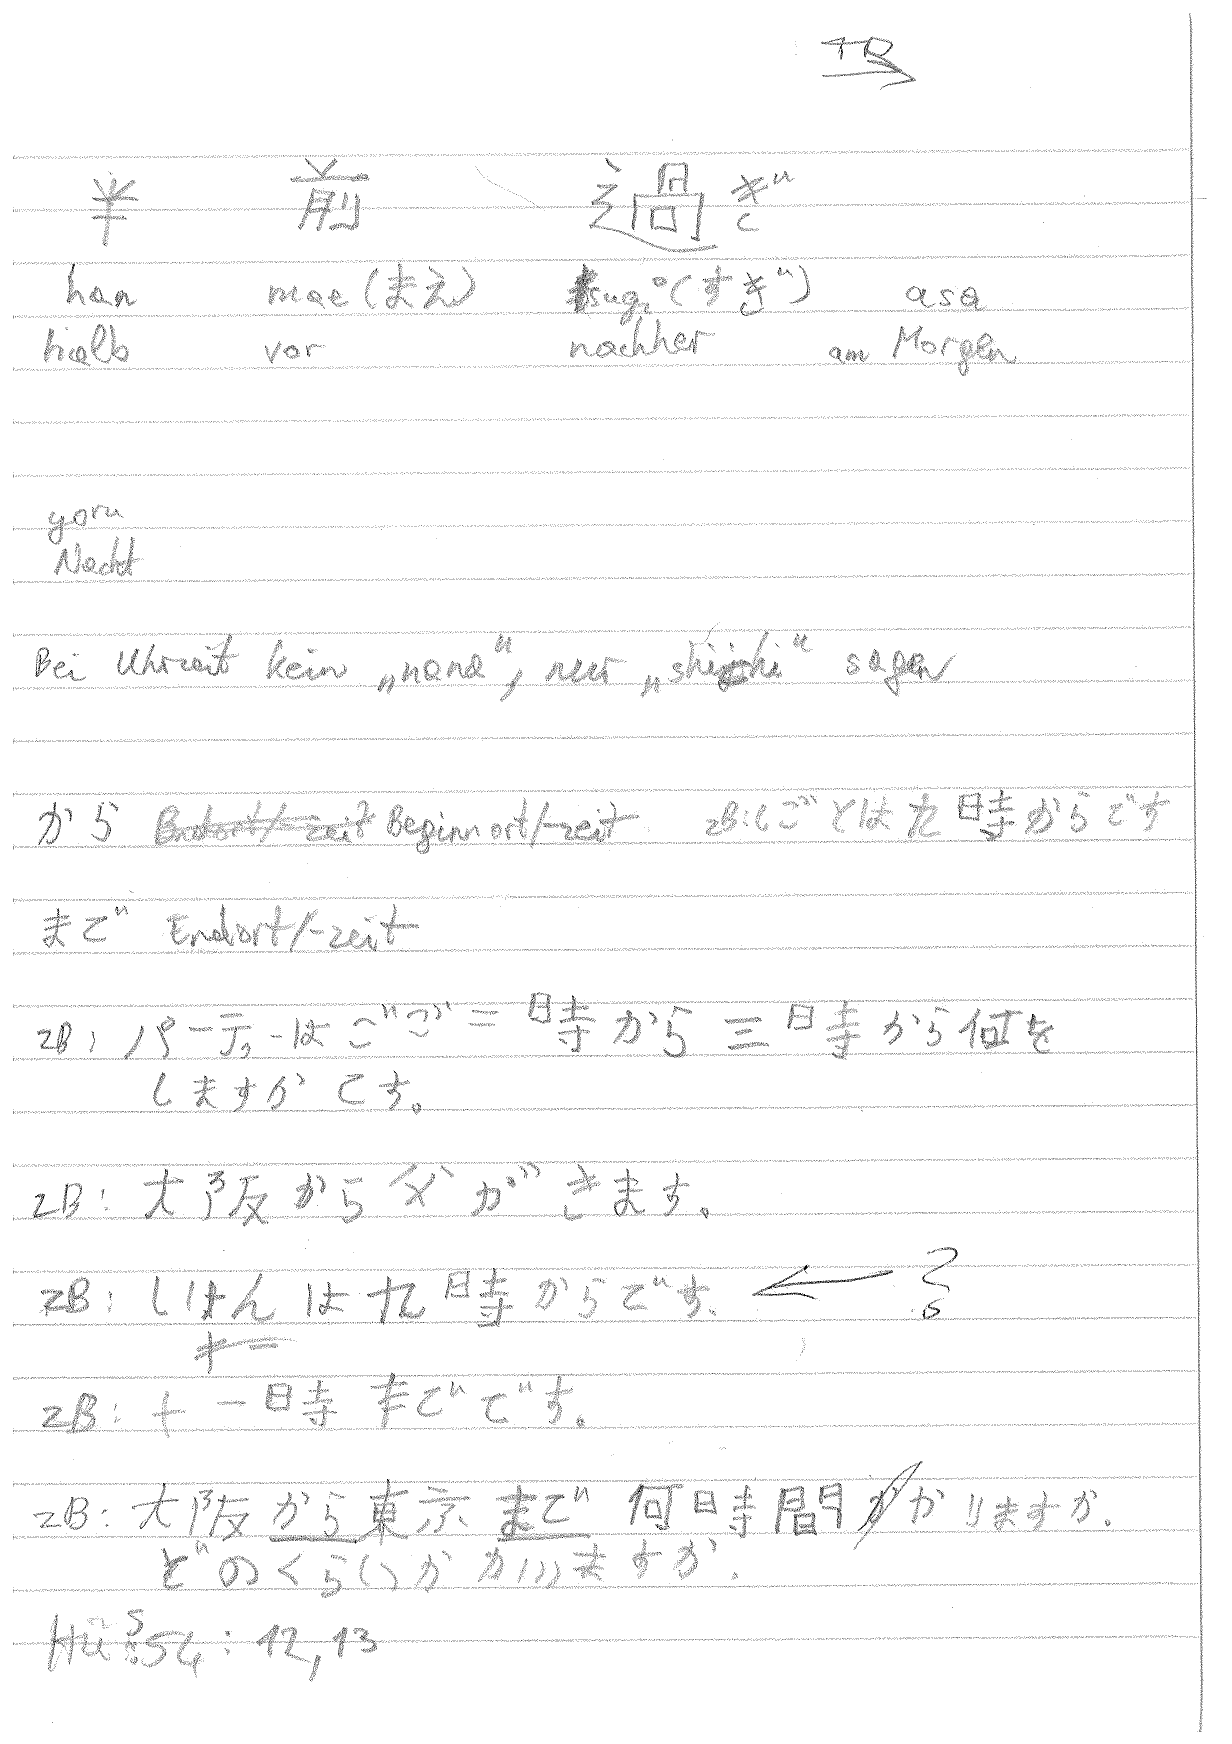 半 前 過ぎ
han mae (まえ) sugi (すぎ) asa
halb vor nachher am Morgen
yoru
Nacht
Bei Uhrzeit kein „nana“, nur „shichi“ sagen
から Endort/-zeit Beginnort/-zeit zB: しごとは九時からです
まで Endort/-zeit
zB: パーティーはごご二時から三時から何を
しますかです。
zB: 大阪から父がきます。
zB: しけんは九時からです。 ← ?
zB: 十一時までです。
zB: 大阪から東京まで何時間かかりますか.
どのくらいかかりますか.
HÜ S. 54: 12, 13